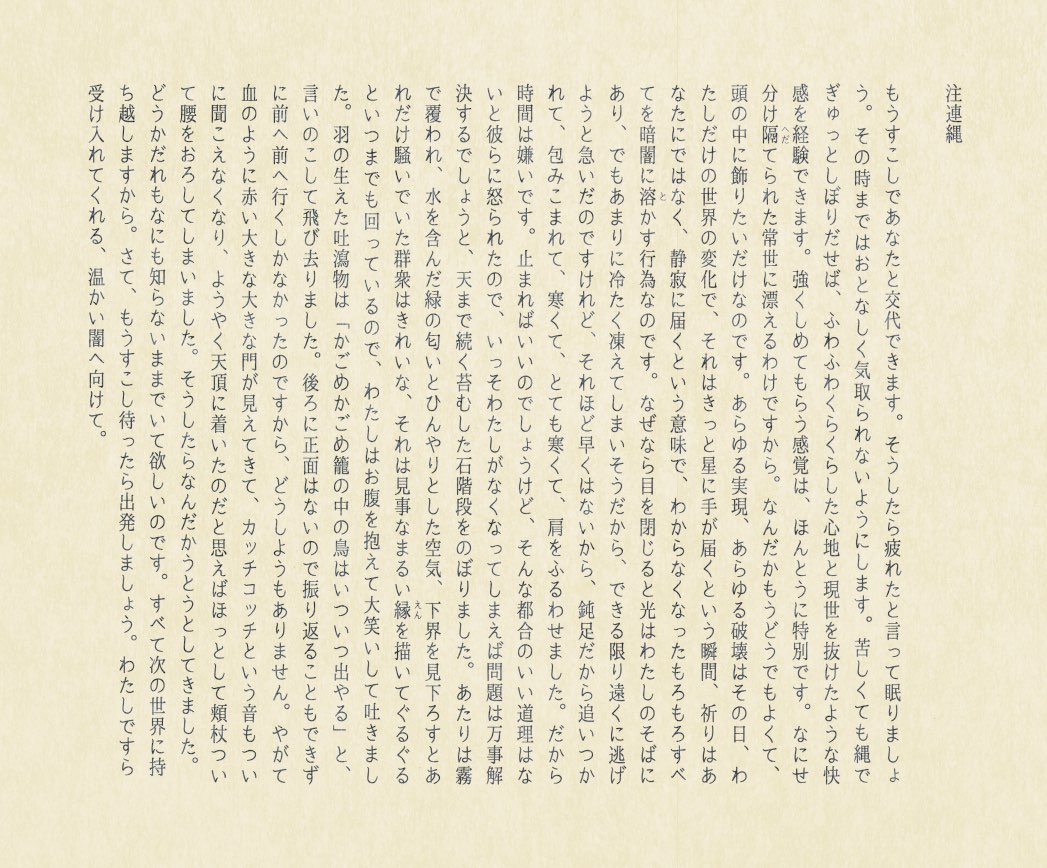 注連縄
もうすこしであなたと交代できます。そうしたら疲れたと言って眠りましょ
う。その時まではおとなしく気取られないようにします。苦しくても縄で
ぎゅっとしぼりだせば、ふわふわくらくらした心地と現世を抜けたような快
感を経験できます。強くしめてもらう感覚は、ほんとうに特別です。なにせ
分け隔てられた常世に漂えるわけですから。なんだかもうどうでもよくて、
頭の中に飾りたいだけなのです。あらゆる実現、あらゆる破壊はその日、わ
たしだけの世界の変化で、それはきっと星に手が届くという瞬間、祈りはあ
なたにではなく、静寂に届くという意味で、わからなくなったもろもろすべ
てを暗闇に溶かす行為なのです。なぜなら目を閉じると光はわたしのそばに
あり、でもあまりに冷たく凍えてしまいそうだから、できる限り遠くに逃げ
ようと急いだのですけれど、それほど早くはないから、鈍足だから追いつか
れて、包みこまれて、寒くて、とても寒くて、肩をふるわせました。だから
時間は嫌いです。止まればいいのでしょうけど、そんな都合のいい道理はな
いと彼らに怒られたので、いっそわたしがなくなってしまえば問題は万事解
決するでしょうと、天まで続く苔むした石階段をのぼりました。あたりは霧
で覆われ、水を含んだ緑の匂いとひんやりとした空気、下界を見下ろすとあ
れだけ騒いでいた群衆はきれいな、それは見事なまるい縁を描いてぐるぐる
といつまでも回っているので、わたしはお腹を抱えて大笑いして吐きまし
た。羽の生えた吐瀉物は「かごめかごめ籠の中の鳥はいついつ出やる」と、
言いのこして飛び去りました。後ろに正面はないので振り返ることもできず
に前へ前へ行くしかなかったのですから、どうしようもありません。やがて
血のように赤い大きな大きな門が見えてきて、カッチコッチという音もつい
に聞こえなくなり、ようやく天頂に着いたのだと思えばほっとして頬杖つい
て腰をおろしてしまいました。そうしたらなんだかうとうとしてきました。
どうかだれもなにも知らないままでいて欲しいのです。すべて次の世界に持
ち越しますから。さて、もうすこし待ったら出発しましょう。わたしですら
受け入れてくれる、温かい闇へ向けて。